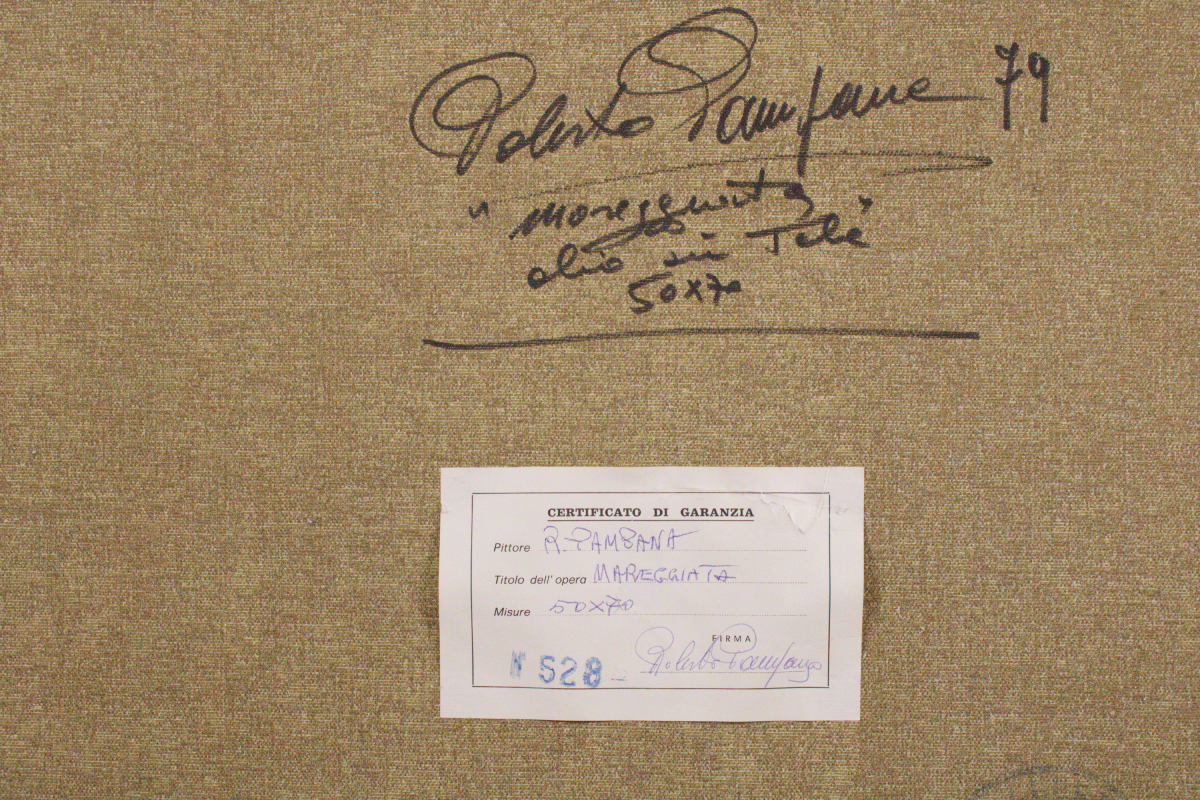 Roberto Pampana 79
"mareggiata
olio su Tela"
50x70
CERTIFICATO DI GARANZIA
Pittore R. PAMPANA
Titolo dell'opera MAREGGIATA
Misure 50x70
FIRMA
N 528 Roberto Pampana